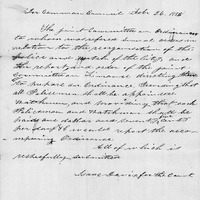 In Common Council Feb. 26, 18
The Joint Committee on Ordinances
to whom was referred
relation to the reorganization of the
Police and Watch of the City, and
the report and of the joint
Committee on Finance directing them
to report an Ordinance Providing that
all Policemen shall be appointed
Watchmen, and providing that each
Policeman and Watchman shall be
paid one dollar and
per day &c would report the accom
panying Ordinance
All of which is
respectfully submitted
Isaac for the Com't